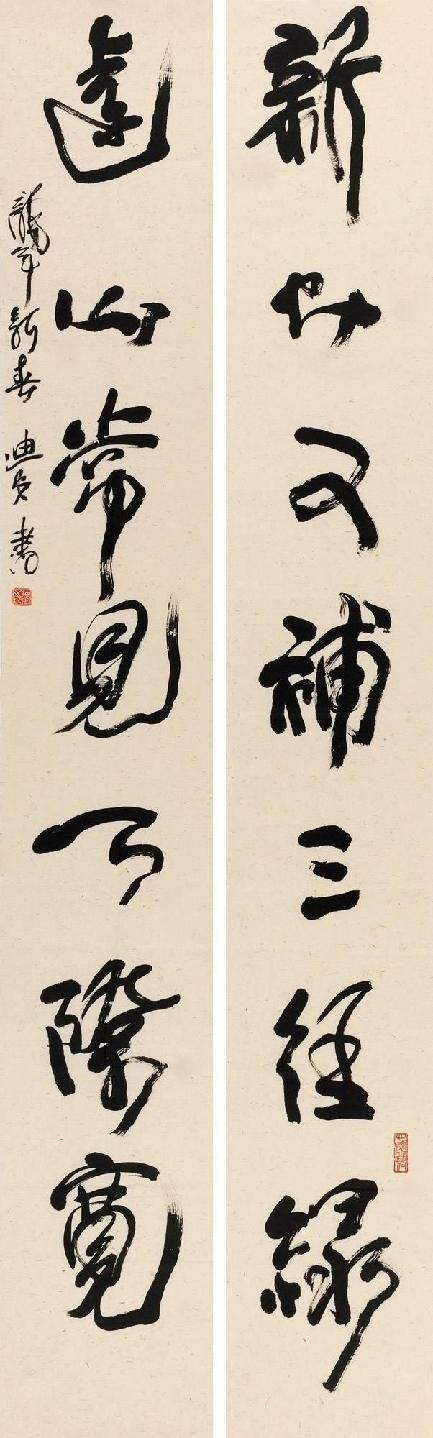 新竹又補三徑綠
遠山常見天際寬
龍年新春 迪書